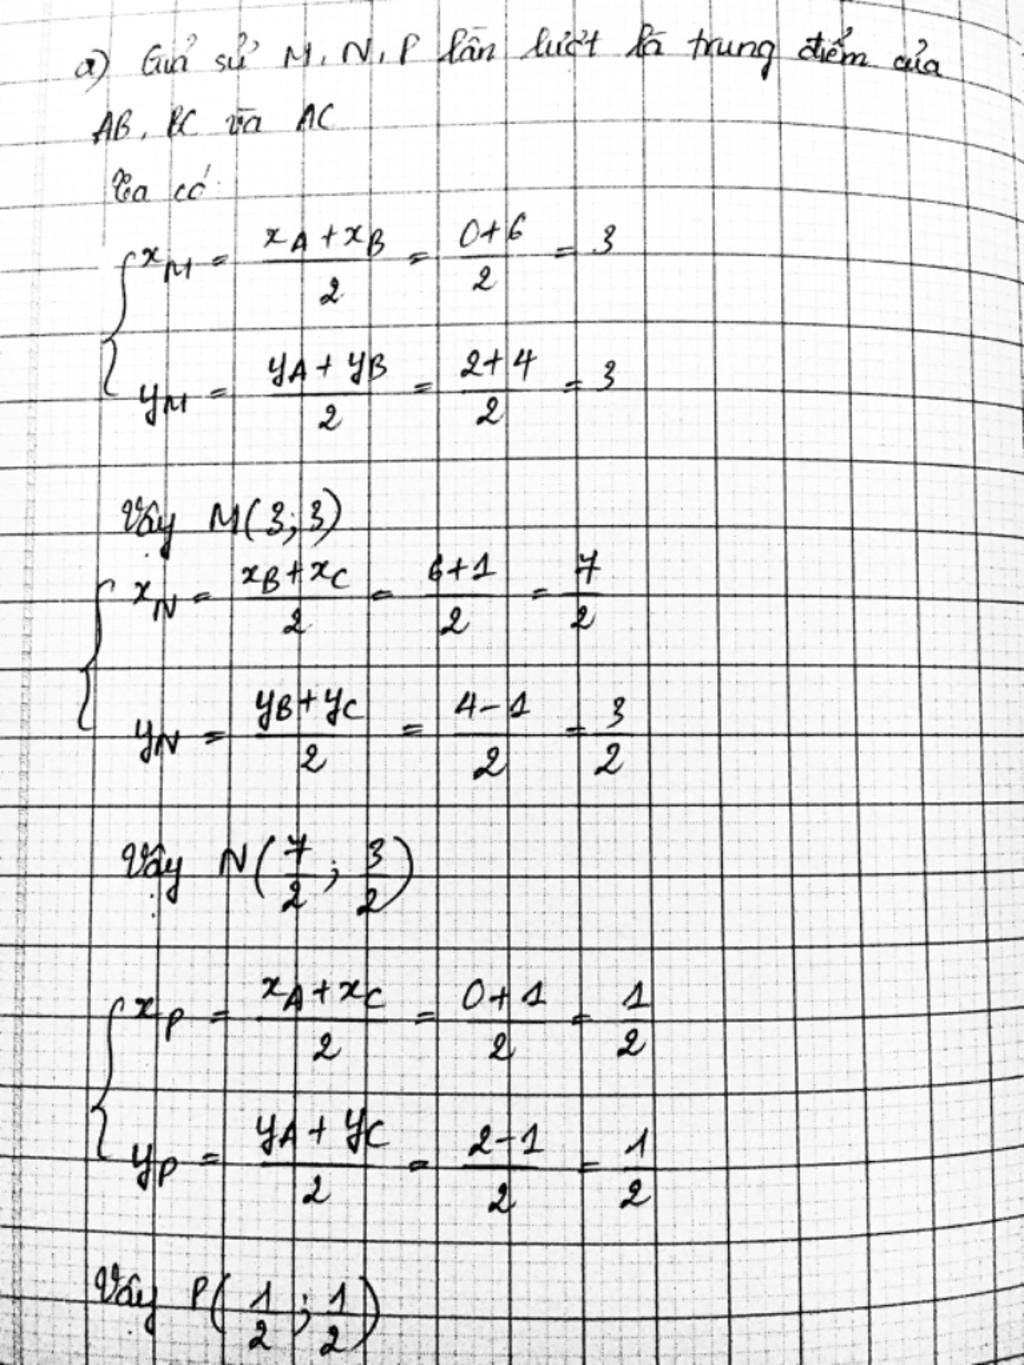 a) Giả sử M, N, P lần lượt là trung điểm của
AB, BC và AC
Ta có:
x_M = (x_A + x_B)/2 = (0+6)/2 = 3
y_M = (y_A + y_B)/2 = (2+4)/2 = 3
Vậy M(3;3)
x_N = (x_B + x_C)/2 = (6+1)/2 = 7/2
y_N = (y_B + y_C)/2 = (4-1)/2 = 3/2
Vậy N(7/2; 3/2)
x_P = (x_A + x_C)/2 = (0+1)/2 = 1/2
y_P = (y_A + y_C)/2 = (2-1)/2 = 1/2
Vậy P(1/2; 1/2)